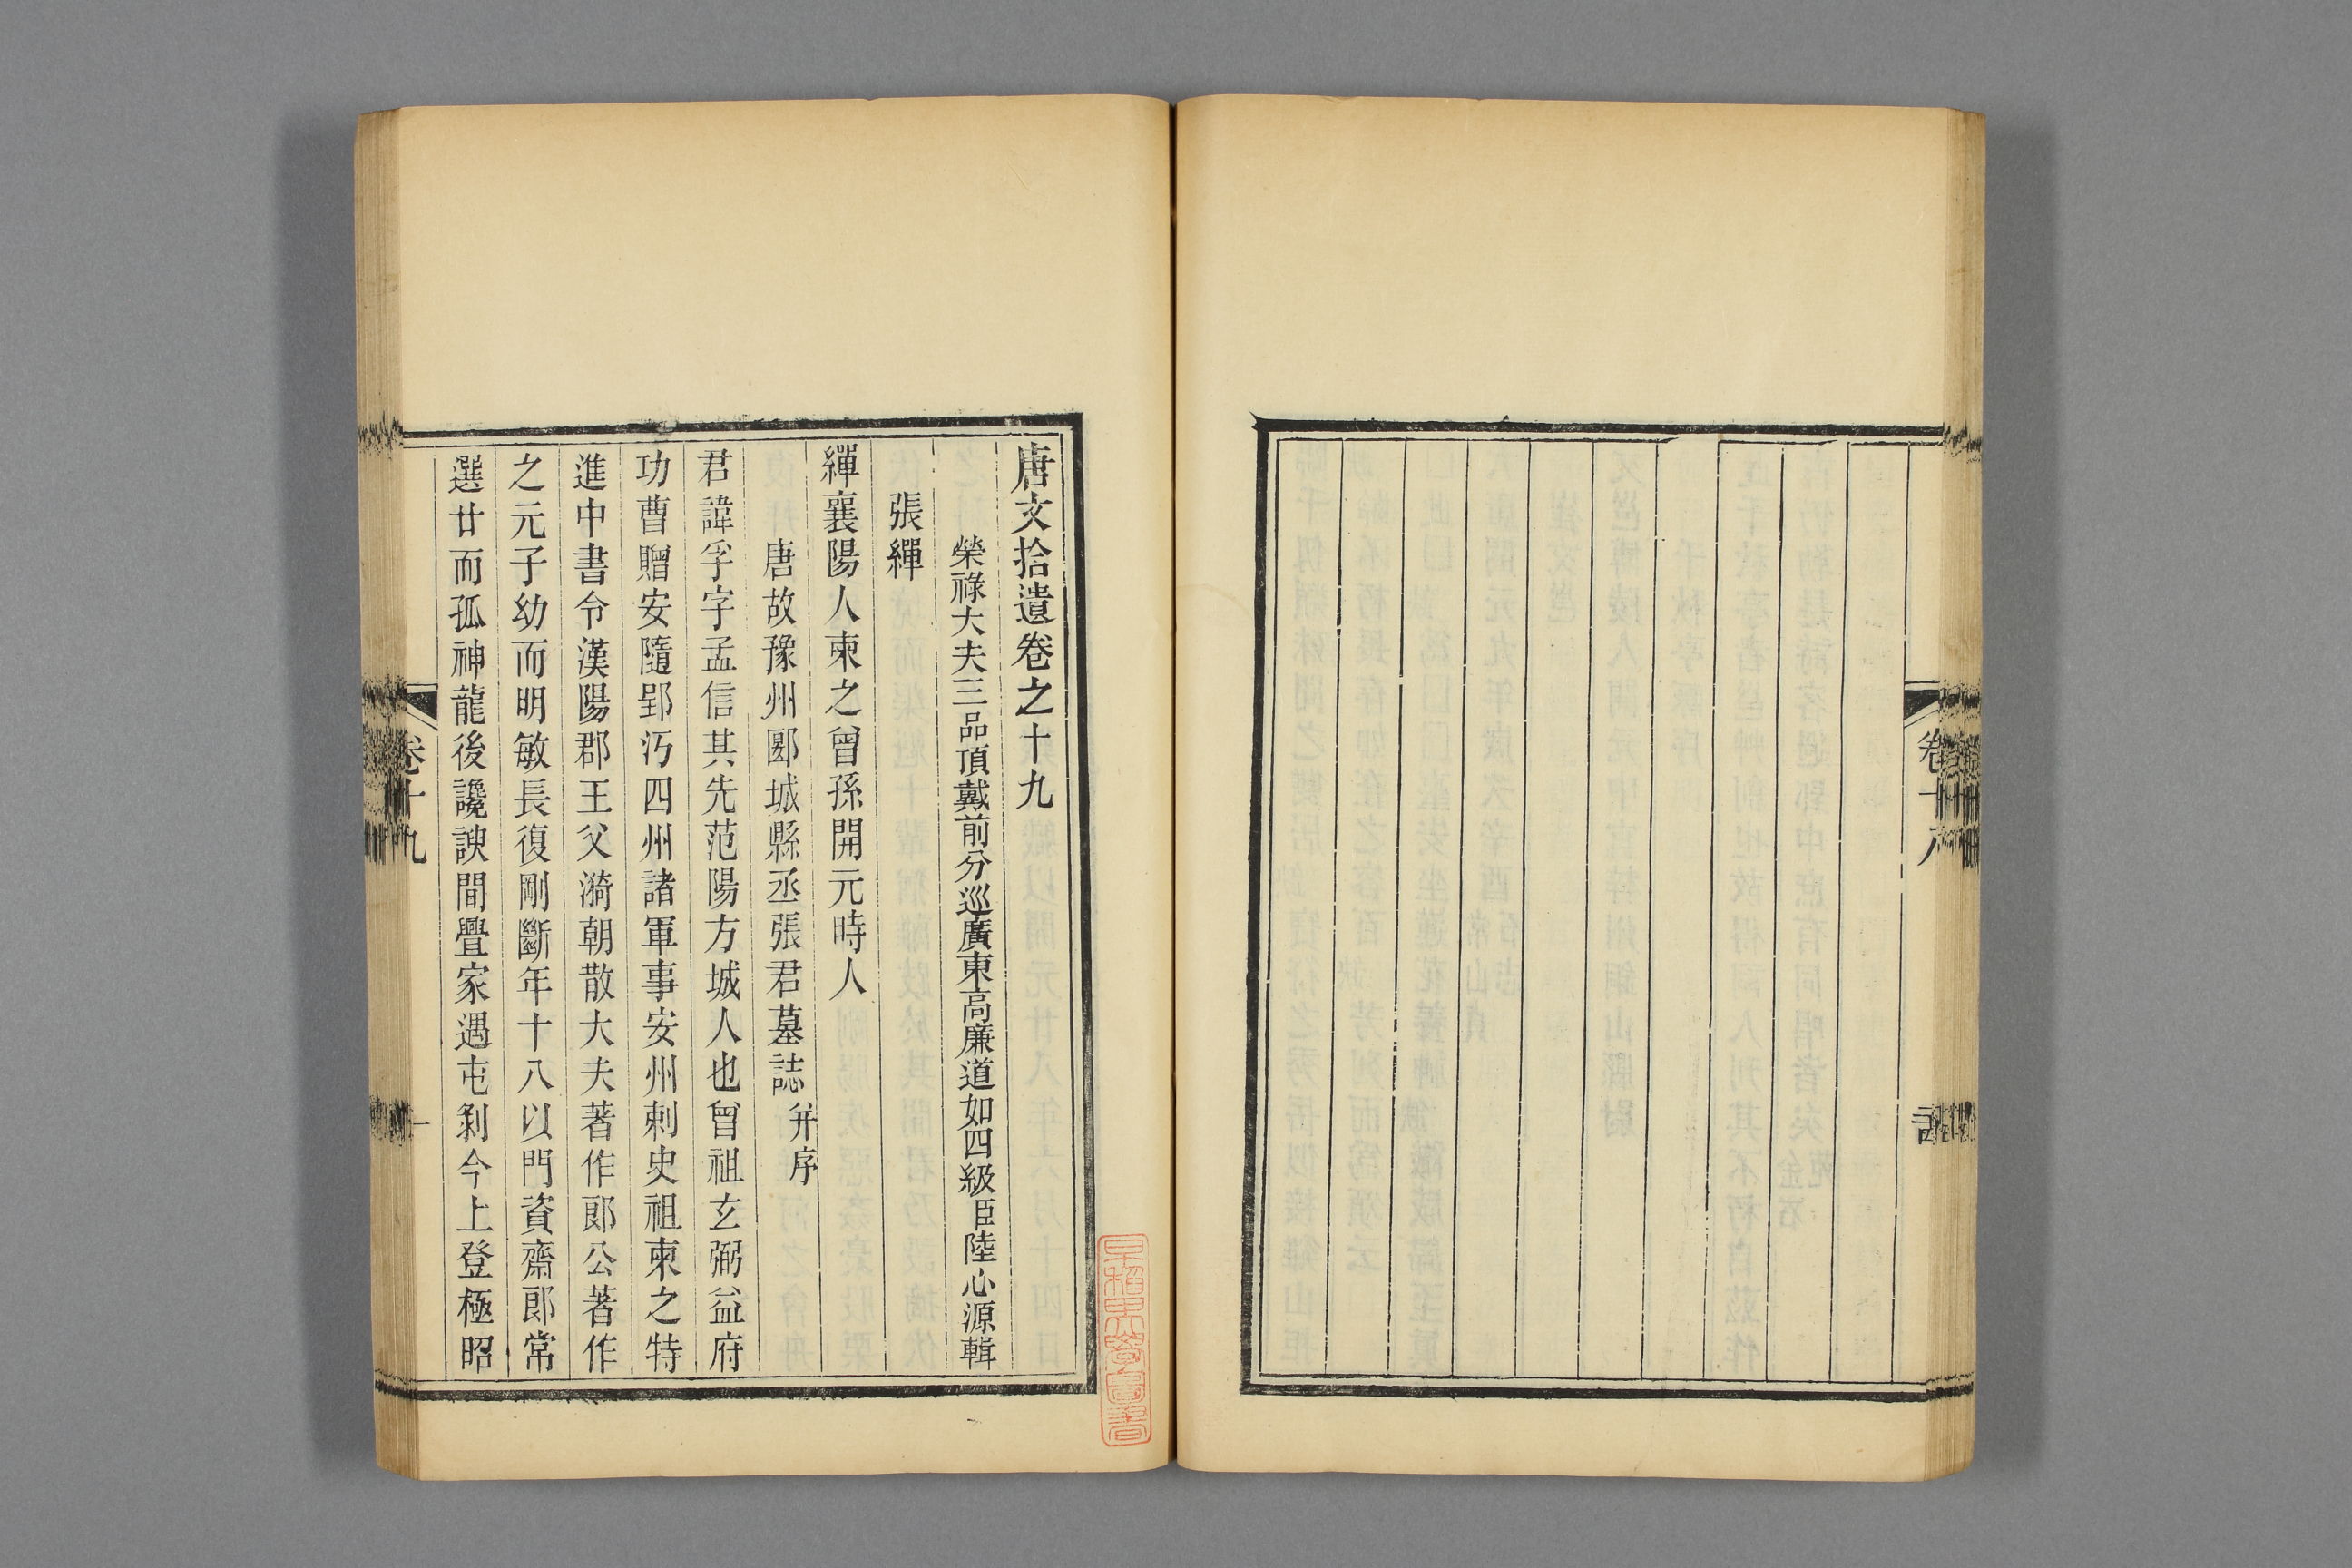 卷十八
唐文拾遺卷之十九
榮祿大夫三品頂戴前分巡廣東高廉道加四級臣陸心源輯
張繟
繟襄陽人柬之曾孫開元時人
唐故豫州郾城縣丞張君墓誌并序
君諱孚字孟信其先范陽方城人也曾祖玄弼益府
功曹贈安隨郢沔四州諸軍事安州刺史祖柬之特
進中書令漢陽郡王父漪朝散大夫著作郎公著作
之元子幼而明敏長復剛斷年十八以門資齋郎常
選廿而孤神龍後讒諛間舋家遇屯剝今上登極昭
卷十九
一
早稻田大學圖書